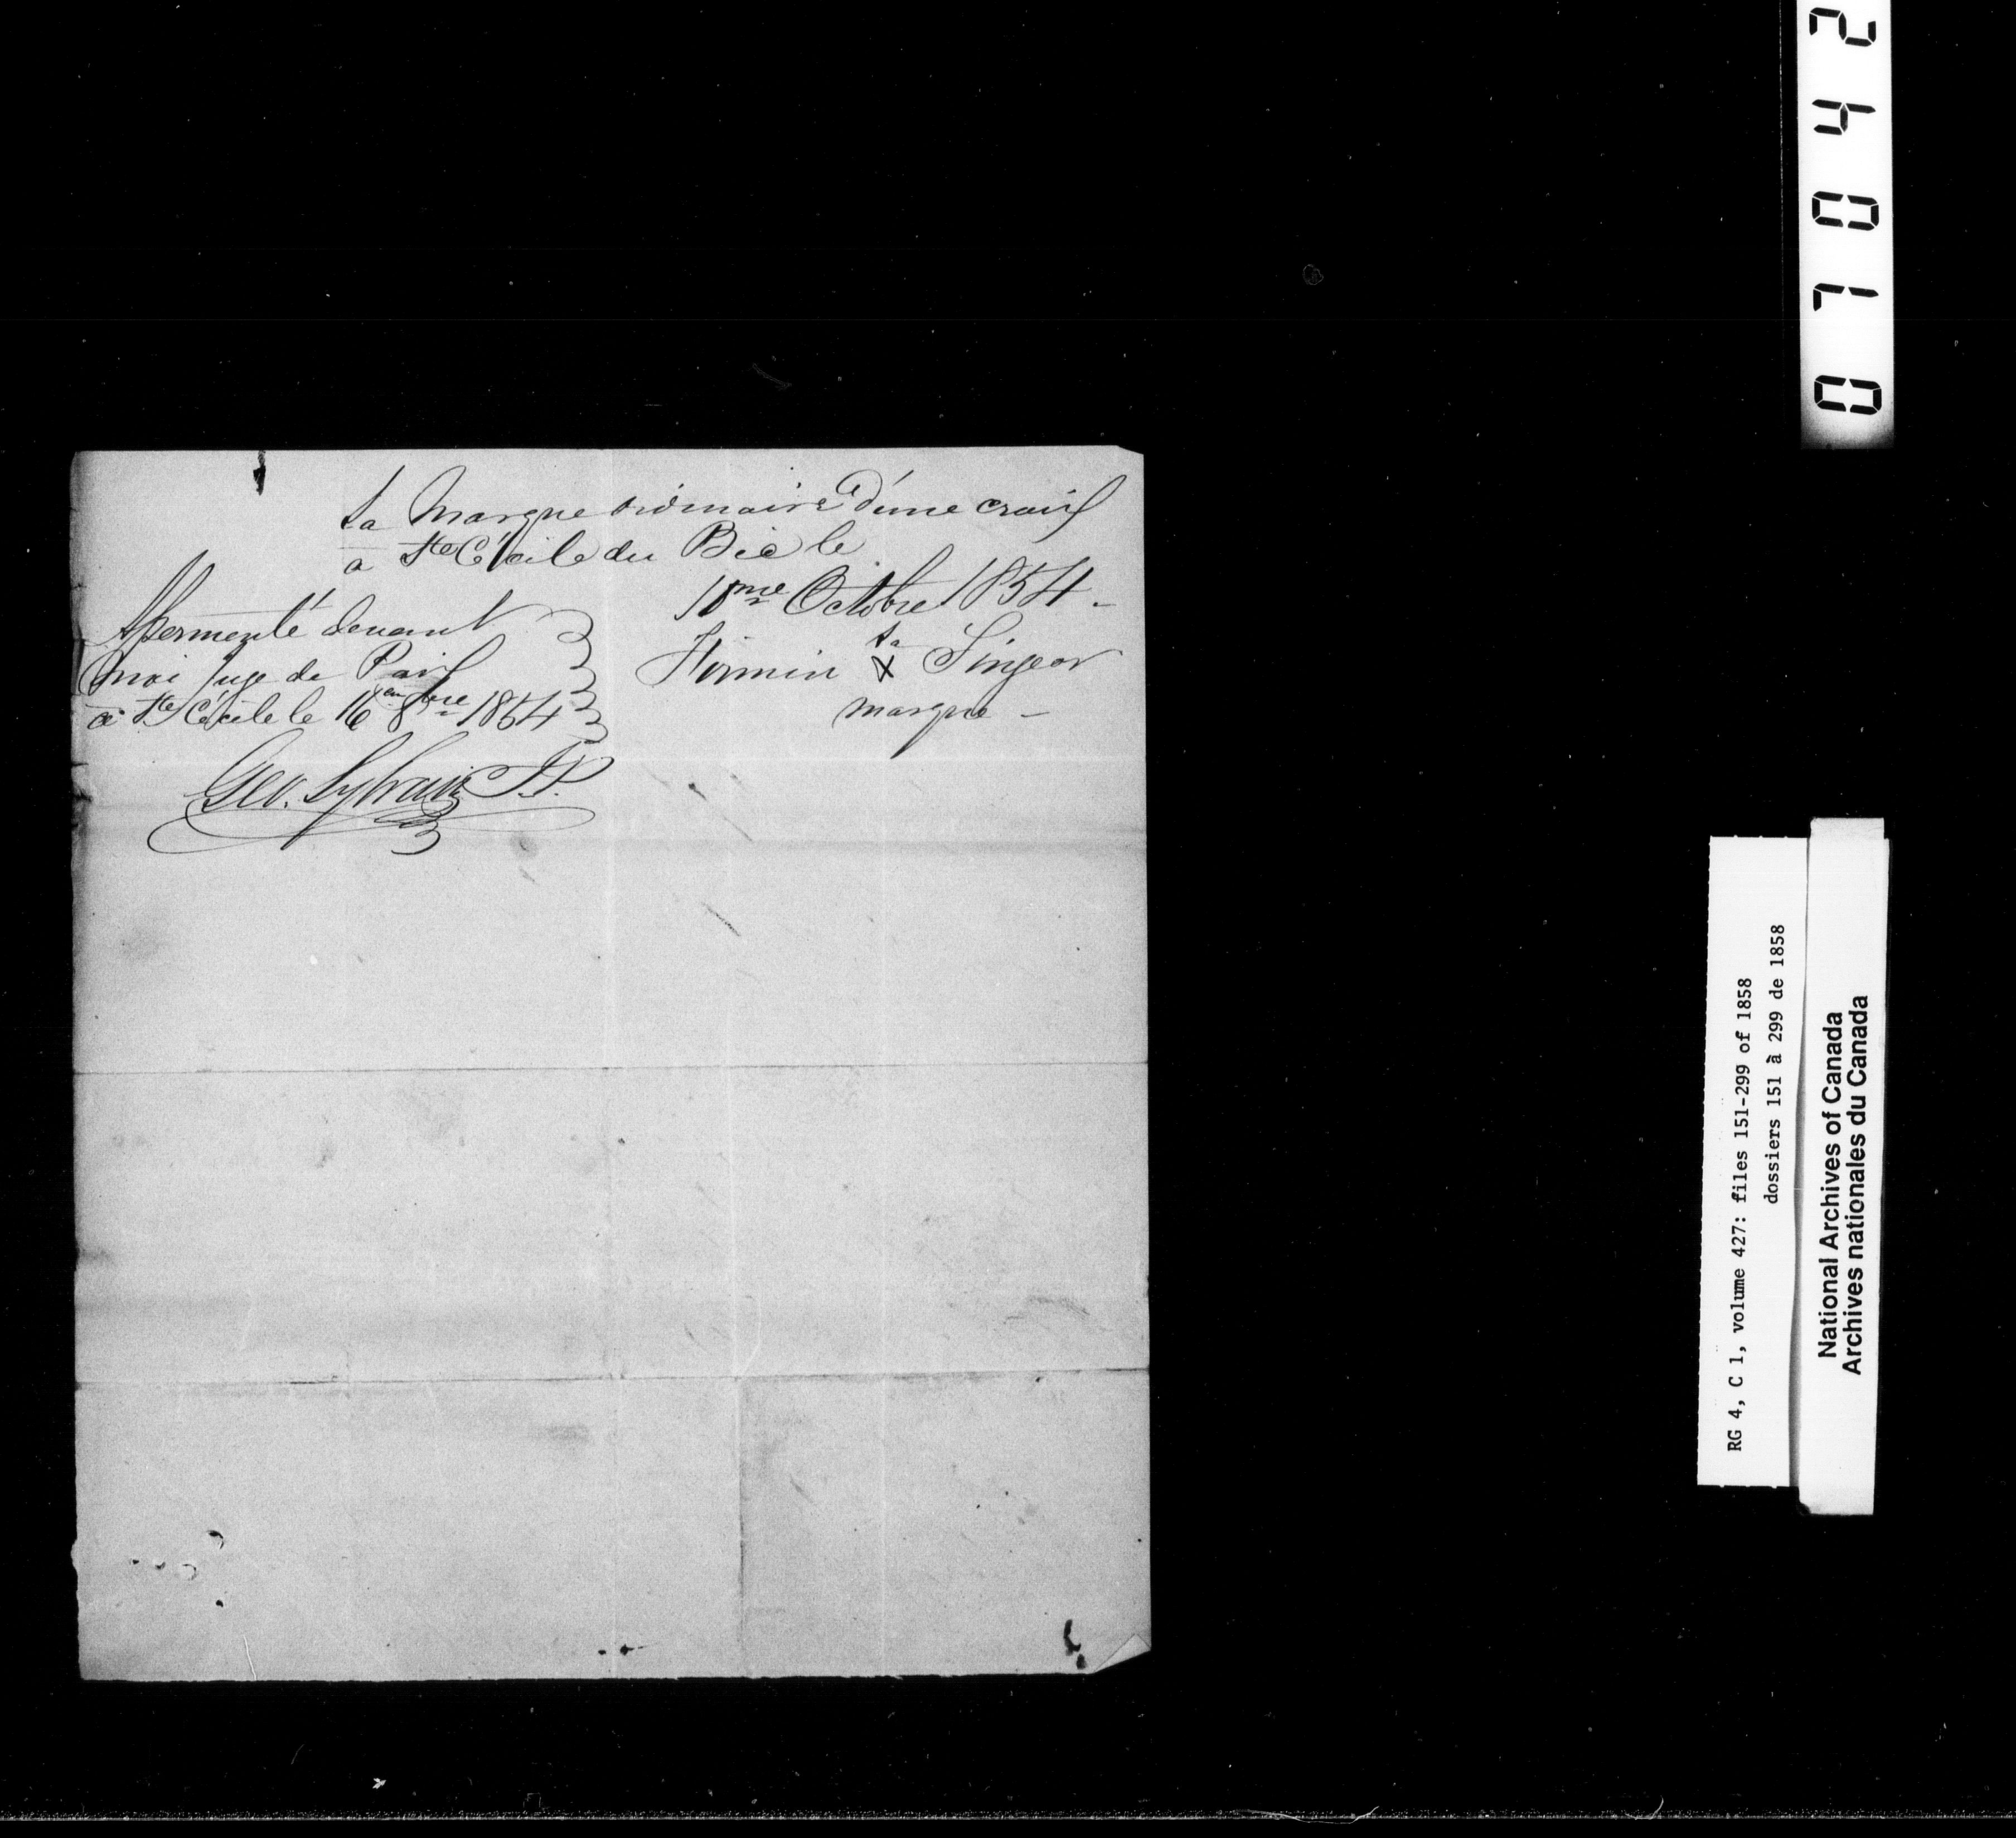 sa Marque ordinaire d'une croix
a Ste Cécile du Bic le
10me Octobre 1854 -
Assermenté devant
moi Juge de Paix
à Ste Cécile le 16 8bre 1854
Firmin sa X Singeor
marque -
Geo. Sylvain J.P.
RG 4, C 1, volume 427: files 151-299 of 1858
dossiers 151 à 299 de 1858
National Archives of Canada
Archives nationales du Canada
07042